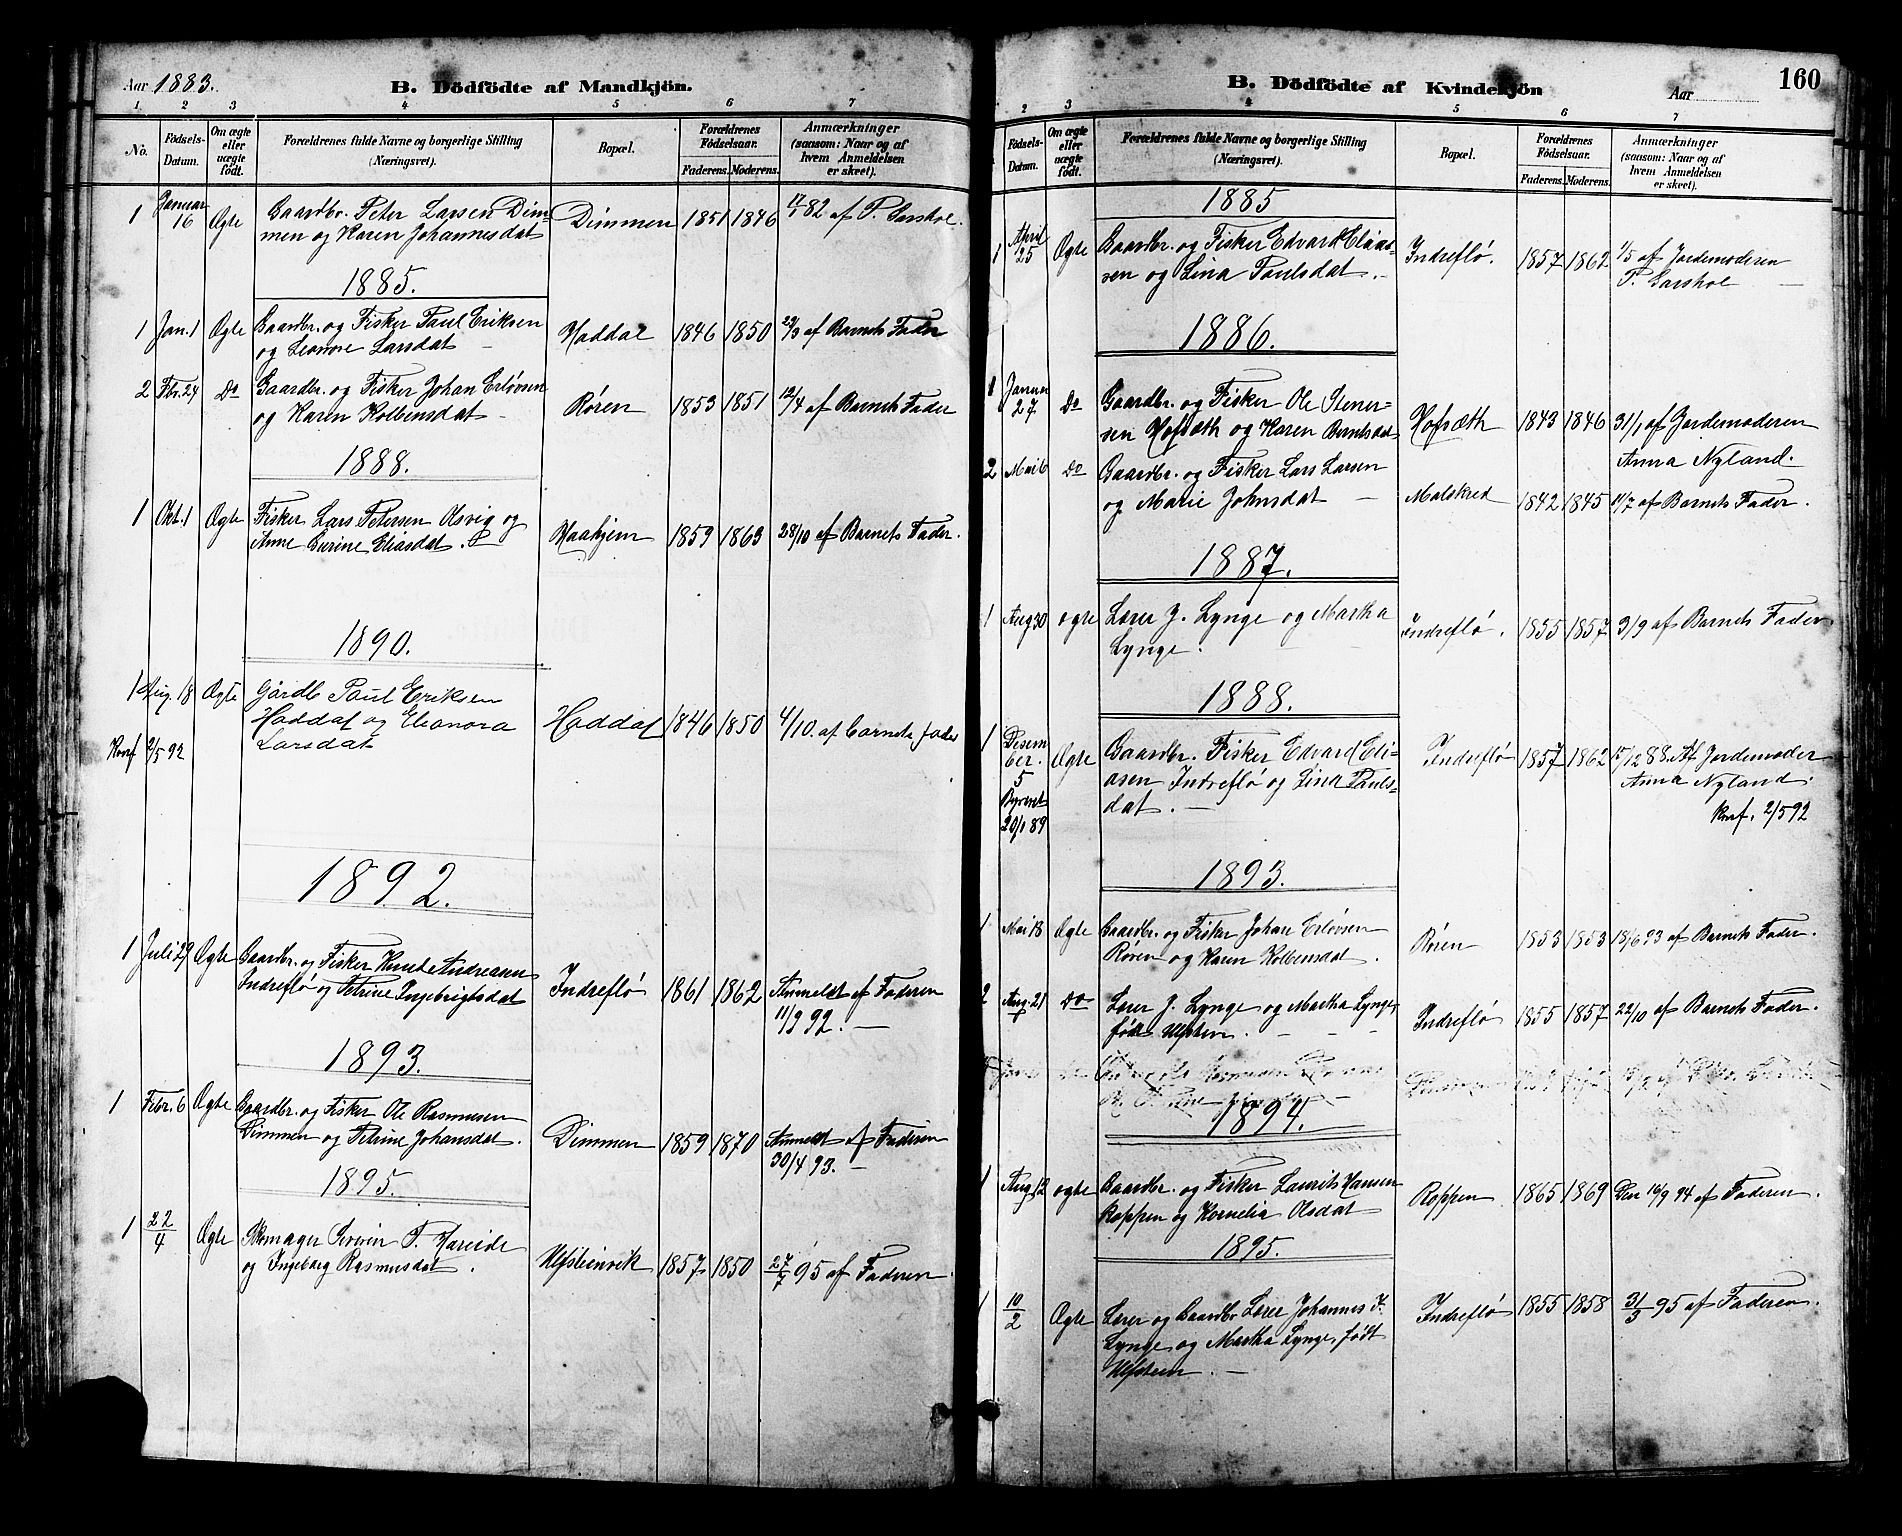 Aar 1883.
B. Dödfödte af Mandkjön.
1 2 3 4 5 6 7
No.
Födsels-
Datum.
Om ægte
eller
uægte
födt.
Forældrenes fulde Navne og borgerlige Stilling
(Næringsvei).
Bopæl.
Forældrenes
Födselsaar.
Faderens. Moderens.
Anmærkninger
(saasom: Naar og af
hvem Anmeldelsen
er skeet).
1 Januar 16 Ægte Gaardbr. Peter Larsen Dim-
men og Karen Johannesdat Dimmen 1851 1846 82 af P.
1885.
1 Jan. 1 Ægte Gaardbr. og Fisker Paul Eriksen
og Leonore Larsdat Haddal 1846 1850 22/3 af Barnets Fader
2 Fbr. 24 Do Gaardbr. og Fisker Johan Erlövsen
og Karen Kolbensdat Røren 1853 1851 12/4 af Barnets Fader
1888.
1 Okt. 1 Ægte Fisker Lars Petersen Osvig og
Anne Gurine Eliasdat. Haahjem 1859 1863 28/10 af Barnets Fader.
1890.
1 Aug. 18 Ægte Gårdb Paul Eriksen
Haddal og Eleonora
Larsdat Haddal 1846 1850 4/10. af Barnets Fader
Konf 2/5 92
1892.
1 Juli 29 Ægte Gaardbr. og Fisker Knut Andreasen
Indreflø og Petrine Ingebrigtsdat Indreflø 1861 1862 Anmeldt af Faderen
11/9 92.
1893.
1 Febr. 6 Ægte Gaardbr. og Fisker Ole Rasmusen
Dimmen og Petrine Johansdat. Dimmen 1859 1870 Anmeldt af Faderen
30/4 93.
1895.
1 22/4 Ægte Skomager Severin P. Hareide
og Ingeborg Rasmusdat. Ulfsteinvik 1857 1850 27/7 95 af Faderen.
B. Dödfödte af Kvindekjön
Aar
160
2 3 4 5 6 7
Födsels-
Datum.
Om ægte
eller
uægte
födt.
Forældrenes fulde Navne og borgerlige Stilling
(Næringsvei).
Bopæl.
Forældrenes
Födselsaar.
Faderens. Moderens.
Anmærkninger
(saasom: Naar og af
hvem Anmeldelsen
er skeet).
1885
1 April 25 Ægte Gaardbr. og Fisker Edvard Elias-
sen og Lina Paulsdat. Indreflø. 1857 1862 1/5 af Jordemoderen
P.
1886.
1 Januar 27 Do Gaardbr. og Fisker Ole Stener-
sen Hofsæth og Karen Berntsdat Hofsæth 1843 1846 31/1 af Jordemoderen
Anna Nyland.
2 Mai 6 Do Gaardbr. og Fisker Lars Larsen
og Marie Johnsdat Molskred 1842 1845 11/7 af Barnets Fader.
1887.
1 Aug 30 ægte Lærer J. Lynge og Martha
Lynge. Indreflø. 1855 1857 3/9 af Barnets Fader
1888.
1 Desem
ber.
5 Ægte Gaardbr. Fisker Edvard Eli-
asen Indreflø og Lina Pauls-
dat. Indreflø 1857 1862 15/12 88. Af Jordemoder
Anna Nyland.
20/1 89
Konf. 2/5 92
1893.
1 Mai 18 Ægte Gaardbr. og Fisker Johan Erlövsen
Røren og Karen Kolbensdat. Røren 1853 1853 18/6 93 af Barnets Fader.
2 Aug. 21 Do Lærer J. Lynge og Martha Lynge,
født Ulfstein. Indreflø 1855 1857 22/10 af Barnets Fader.
1894.
1 Aug. 12 ægte Gaardbr. og Fisker Laurits Hansen
Roppen og Kornelia Olsdat Roppen 1865 1869 Den 16/9 94 af Faderen.
1895.
1 10/2 Ægte Lærer og Gaardbr Lærer Johannes J.
Lynge og Martha Lynge, født
Ulfstein. Indreflø 1855 1858 31/3 95 af Faderen.